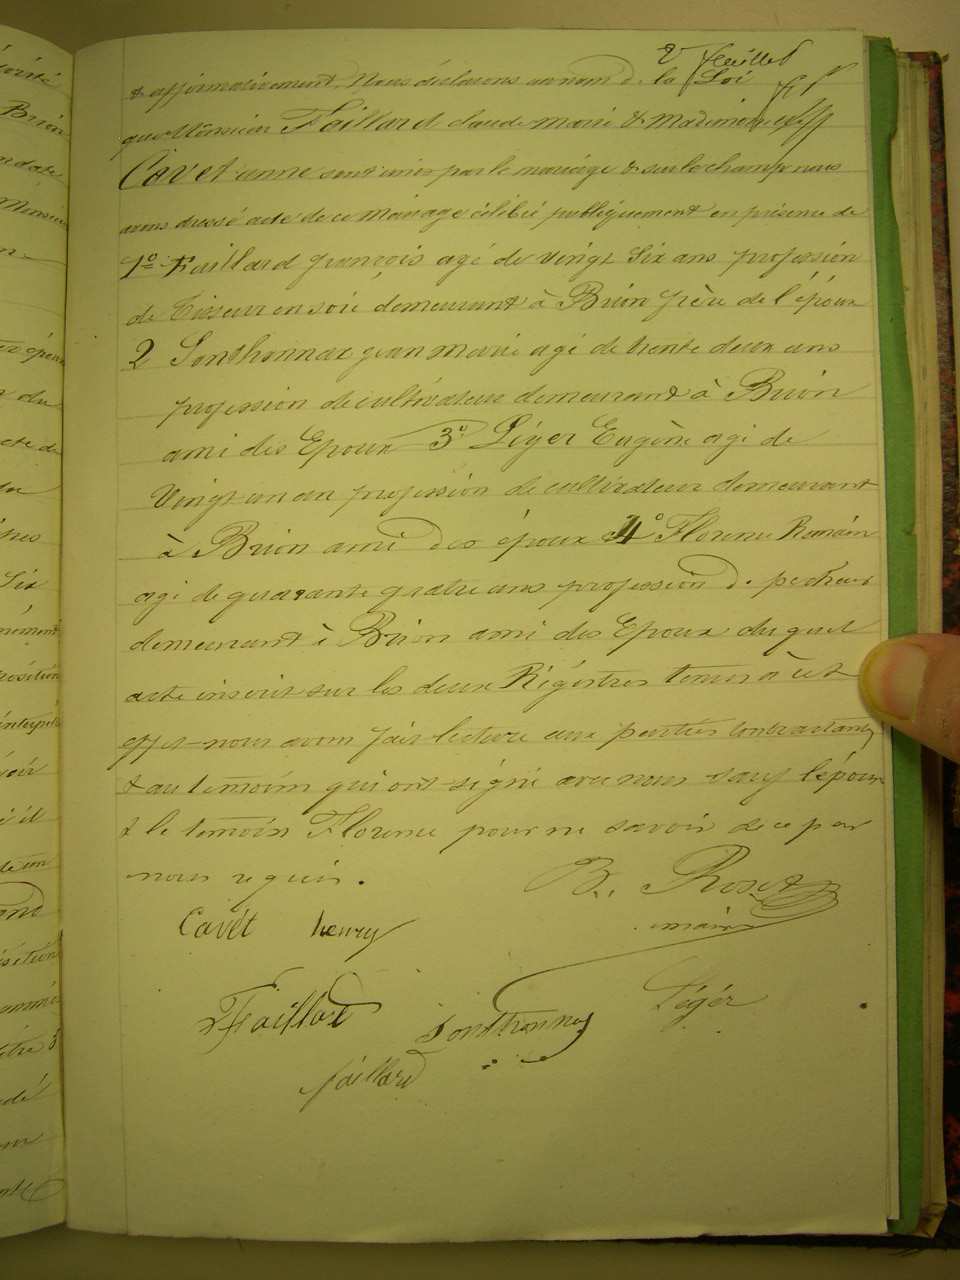 2 feuillet
& affirmativement, Nous déclarons au nom de la Loi
que Monsieur Faillard claude marie & Mademoiselle
Cavet anne sont unis par le mariage & sur le champ nous
avons dressé acte de ce Mariage célébré publiquement en présence de
1º Faillard françois agé de vingt Six ans profession
de Tisseur en soie demeurant à Brion frère de l'époux
2 Sonthonnax jean marie agé de trente deux ans
profession de cultivateur demeurant à Brion
ami des Epoux 3º Léger Eugène agé de
Vingt un an profession de cultivateur demeurant
à Brion ami des époux 4º Florence Romain
agé de quarante quatre ans profession de pecheur
demeurant à Brion ami des Epoux du quel
acte inscrit sur les deux Régistres tenus à cet
effet nous avons fait lecture aux parties contractants
& au temoins qui ont signé avec nous sauf l'époux
& le temoin Florence pour ne savoir de ce par
nous requis.
B. Roset
maire
Cavét henry
Faillard Sonthonnax Légér
faillard